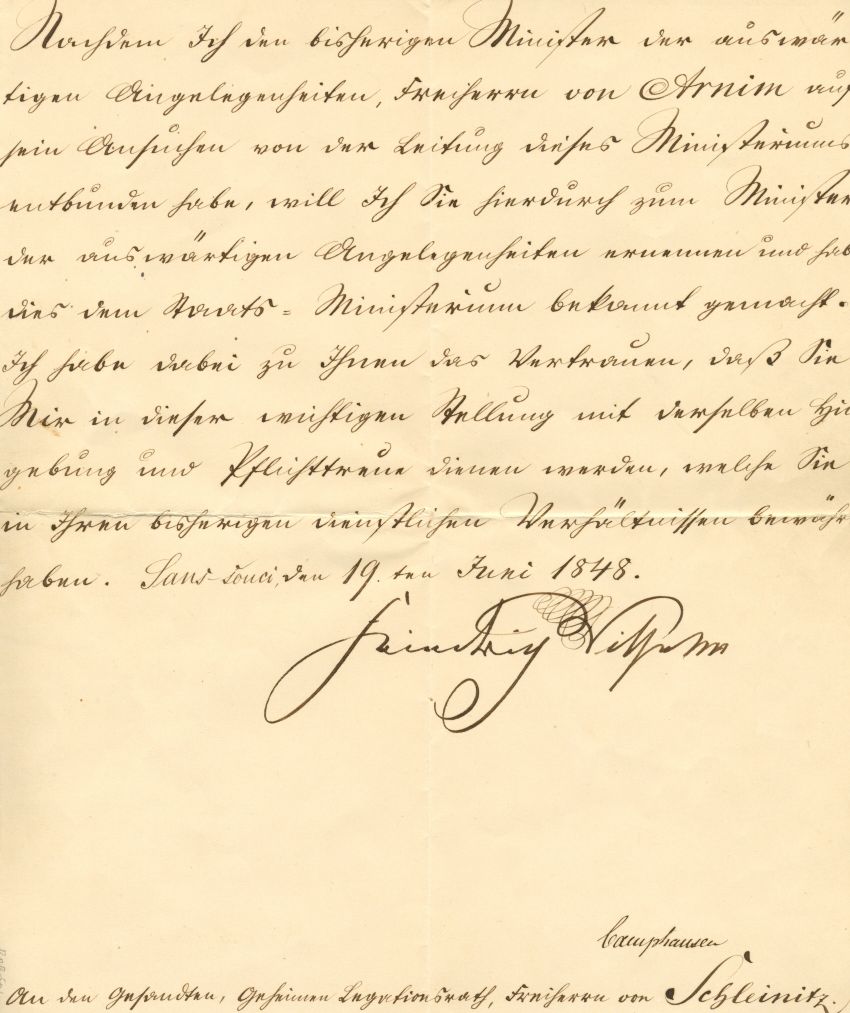 Nachdem Ich den bisherigen Minister der auswär
tigen Angelegenheiten, Freiherrn von Arnim auf
sein Ansuchen von der Leitung dieses Ministeriums
entbunden habe, will Ich Sie hierdurch zum Minister
der auswärtigen Angelegenheiten ernennen und hab
dies dem Staats= Ministerium bekannt gemacht.
Ich habe dabei zu Ihnen das Vertrauen, daß Sie
Mir in dieser wichtigen Stellung mit derselben Hin
gebung und Pflichttreue dienen werden, welche Sie
in Ihren bisherigen dienstlichen Verhältnissen bewähr
haben. Sans-souci, den 19.ten Juni 1848.
Friedrich Wilhelm
Camphausen
An den Gesandten, Geheimen Legationsrath, Freiherrn von Schleinitz.